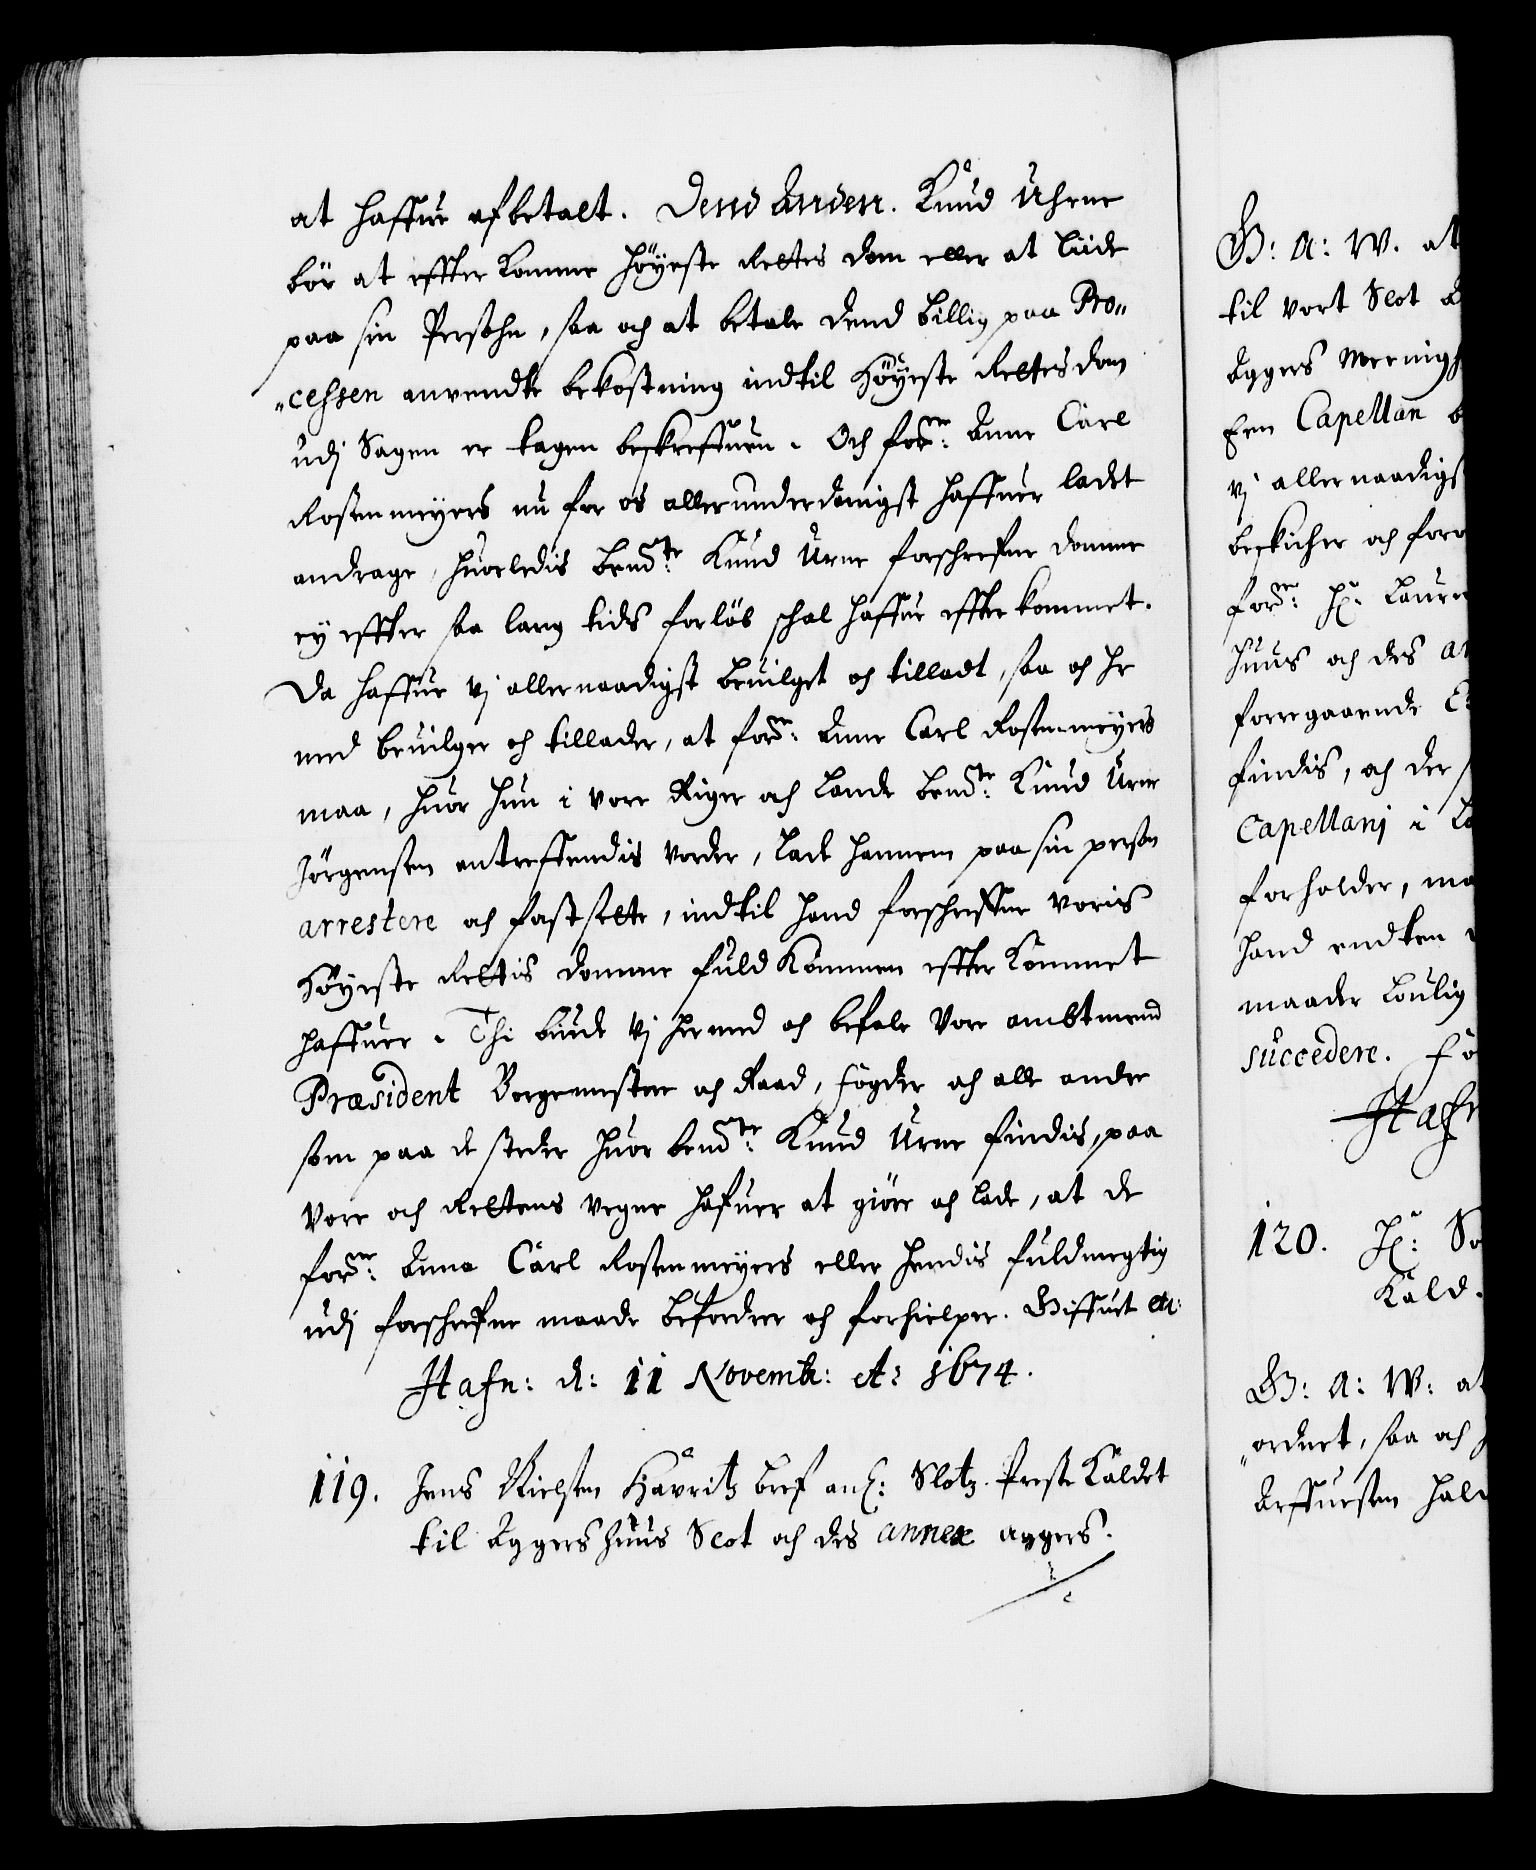 at haffue afbetalt. Dend Anden. Knud Uhrne
bör at effter komme Höyeste Rettes dom eller at liide
paa sin Persohn, saa och at betale dend billig paa Pro„
„cessen anvendte bekostning indtil Höyeste Rettes dom
udj Sagen er tagen beskreffuen. Och forne: Anne Carl
Rosenmeyers nu for os allerunderdanigst haffuer ladet
andrage, huorledis bemte: Knud Urne forschrefne domme
ey effter saa lang tids forlöb schal haffue effterkommet.
Da haffue Vj allernaadigst bevilget och tilladt, saa och her
med bevilger och tillader, at forne: Anne Carl Rosenmeyers
maa, huor hun i vore Riger och Lande bemte: Knud Urne
Jörgensen antreffendis vorder, lade hannem paa sin person
arrestere och fastsette, indtil hand forschreffne voris
Höyeste Rettis domme fuldkommen effterkommet
haffuer. Thi biude Vj hermed och befale Vore ambtmend
Præsident Borgemestere och Raad, fogder och alle andre
som paa de steder huor bemte: Knud Urne findis, paa
Vore och Rettens vegne hafuer at giöre och lade, at de
forne: Anna Carl Rosenmeyers eller hendis fuldmegtig
udj forschrefne maade befordre och forhielper. Giffuet etc:
Hafn: d: 11 Novemb: Ao: 1674.
119. Jens Nielsen Havritz bref anl: Slotz Preste Kaldet
til Aggershuus Slot och des annex aggers.
G: A: W. at
til vort Slot
Aggers Meenigh
Een Capellan
vj allernaadigs
beskicher och foro
forne: Hr: Laur
huus och des an
forregaaende
findis, och der
Capellanj i
forholder, ma
hand endten
maader loulig
succedere. fo
Hafn
120. Hr: So
Kald.
G: A: W: at
„ordnet, saa och
Arffuesten hal